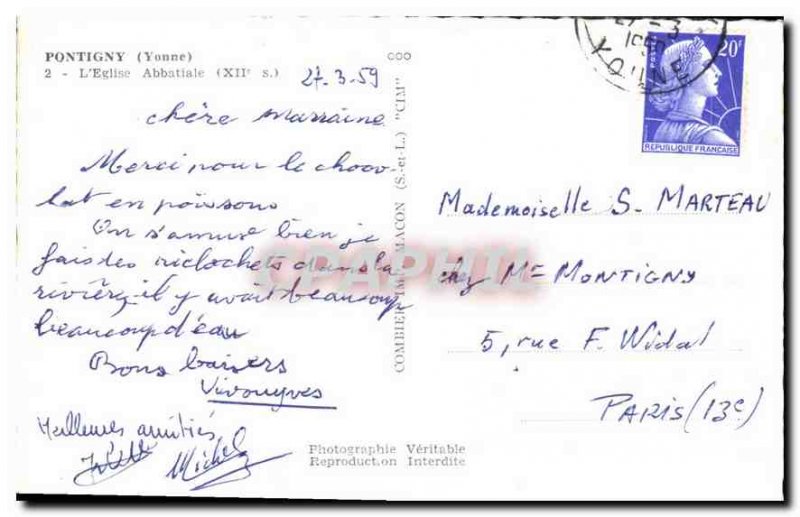 PONTIGNY (Yonne)
2 - L'Eglise Abbatiale (XIIe s.)
27.3.59
chère marraine
Merci pour le choco-
lat en poissons
On s'amuse bien je
fais des riclochets dans la
rivière, il y avait beaucoup
beaucoup d'eau
Bons baisers
Meilleures amitiés
Michel
COMBIER IMP. MACON (S.-et-L.) "CIM"
Photographie Véritable
Reproduction Interdite
CPAPHIL
27 - 3
YONNE
POSTES
20F
REPUBLIQUE FRANCAISE
Mademoiselle S. MARTEAU
chez Me MONTIGNY
5, rue F. Widal
PARIS (13e)